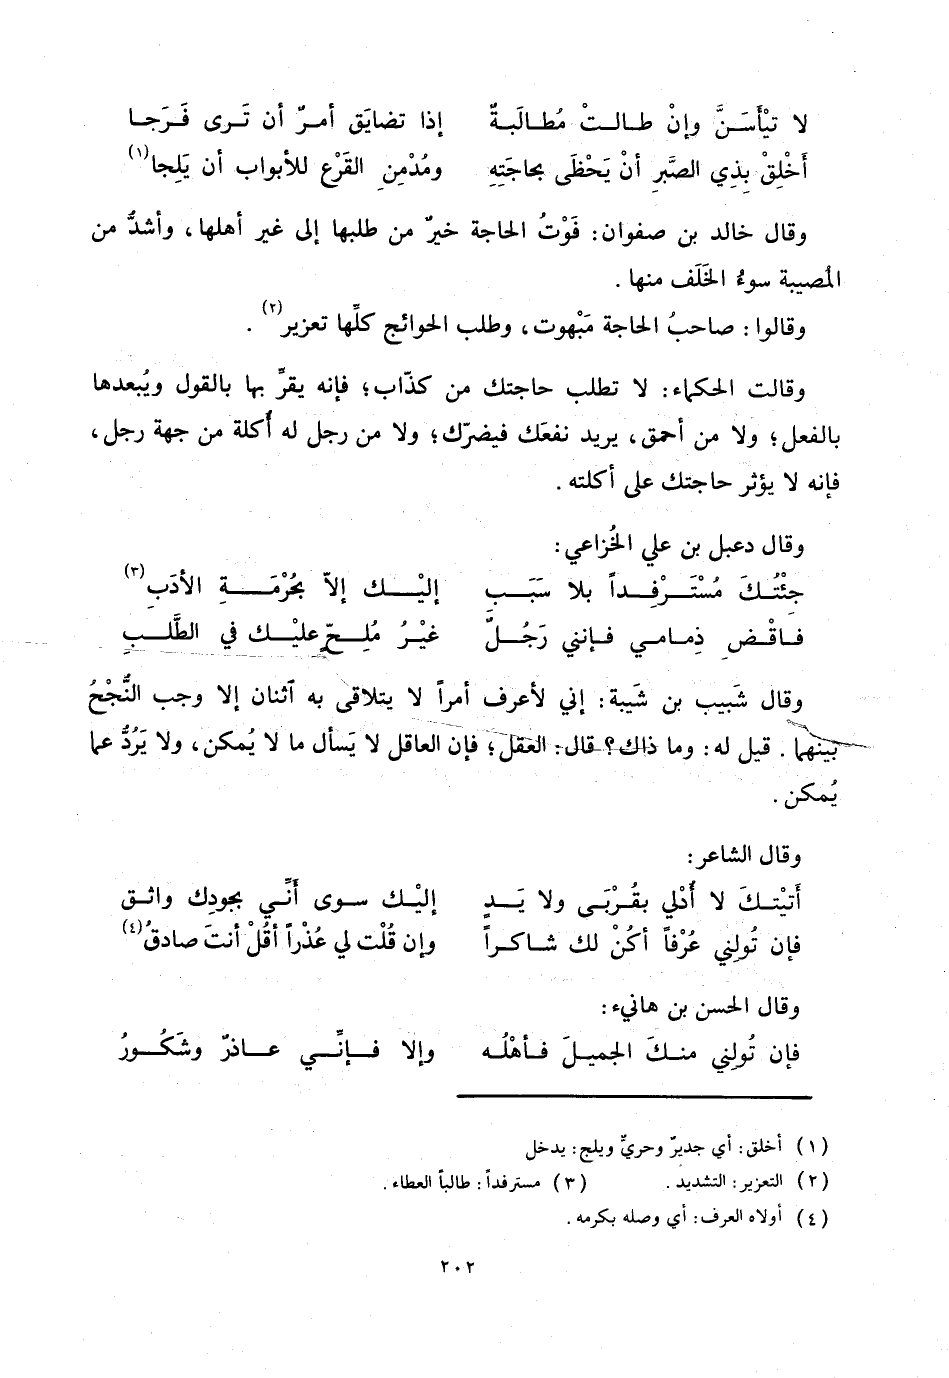 لا تيْأَسَنَّ وإنْ طالتْ مُطالَبةٌ    إذا تضايَق أمرٌ أن تَرى فَرَجا
أَخْلِقْ بذِي الصَّبرِ أنْ يَحْظَى بحاجَتِهِ    ومُدْمِنِ القَرْعِ للأبوابِ أن يَلِجا(١)
وقال خالد بن صفوان: فَوْتُ الحاجة خيرٌ من طلبها إلى غير أهلها، وأشدُّ من
المُصيبة سوءُ الخَلَف منها.
وقالوا: صاحبُ الحاجة مَبْهوت، وطلب الحوائج كلِّها تعزير(٢).
وقالت الحكماء: لا تطلب حاجتك من كذّاب؛ فإنه يقرِّ بها بالقول ويُبعدها
بالفعل؛ ولا من أحمق، يريد نفعَك فيضرّك؛ ولا من رجل له أُكلة من جهة رجل،
فإنه لا يؤثر حاجتك على أكلته.
وقال دعبل بن علي الخُزاعي:
جئْتُكَ مُسْتَرْفِداً بلا سَبَبٍ    إليْك إلاّ بحُرْمَةِ الأدَبِ(٣)
فاقْضِ ذِمامي فإنني رَجُلٌ    غيْرُ مُلِحٍّ عليْك في الطَّلبِ
وقال شَبيب بن شَيبة: إني لأعرف أمراً لا يتلاقى به آثنان إلا وجب النُّجْحُ
بينهما. قيل له: وما ذاك؟ قال: العقل؛ فإن العاقل لا يَسأل ما لا يُمكن، ولا يَرُدُّ عما
يُمكن.
وقال الشاعر:
أتيْتكَ لا أُدْلي بقُرْبَى ولا يَدٍ    إليْك سوى أنِّي بجودِك واثق
فإن تُولِني عُرْفاً أكُنْ لك شاكراً    وإن قُلْت لي عُذْراً أقُلْ أنتَ صادقُ(٤)
وقال الحسن بن هانيء:
فإن تُولِني منكَ الجميلَ فأهْلُه    وإلا فإنِّي عاذرٌ وشَكُورُ
(١) أخلق: أي جديرٌ وحريٌّ ويلج: يدخل
(٢) التعزير: التشديد.    (٣) مسترفداً: طالباً العطاء.
(٤) أولاه العرف: أي وصله بكرمه.
٢٠٢